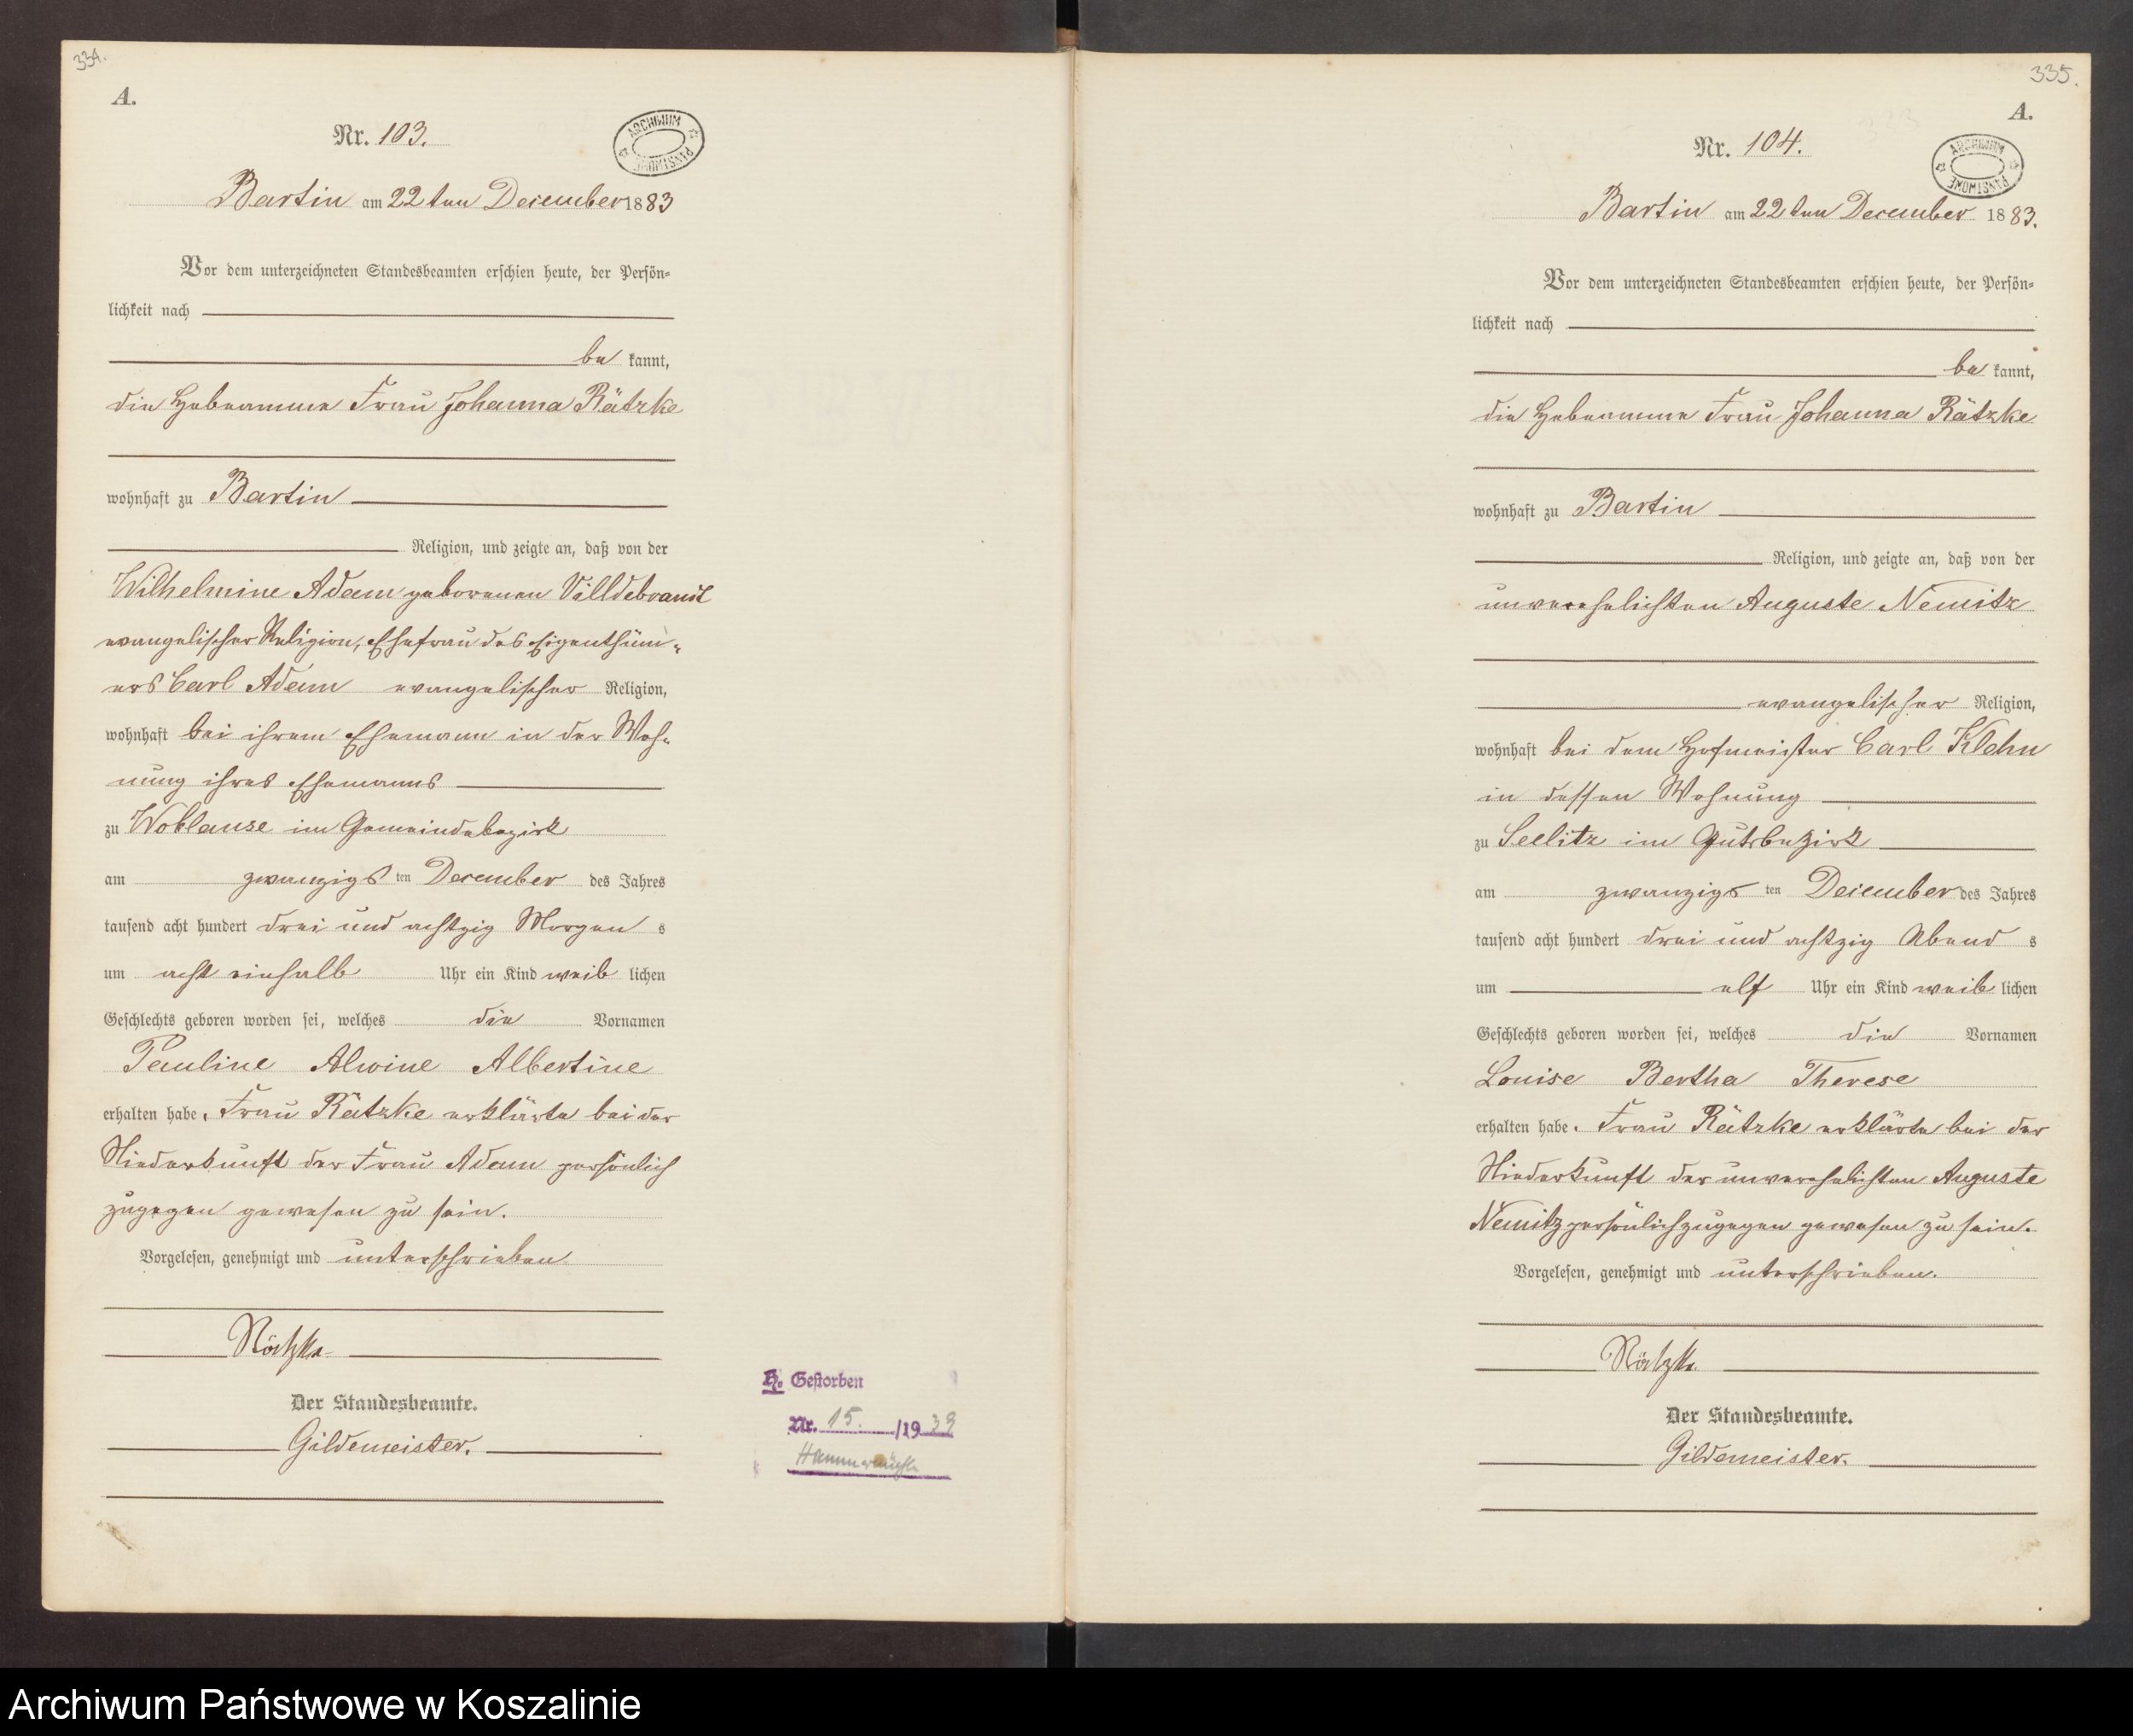 334.
A.
Nr. 103.
ARCHIWUM PAŃSTWOWE
Bartin am 22ten December 1883
Vor dem unterzeichneten Standesbeamten erschien heute, der Persön-
lichkeit nach
be kannt,
die Hebeamme Frau Johanna Rätzke
wohnhaft zu Bartin
Religion, und zeigte an, daß von der
Wilhelmine Adam geborenen
evangelischer Religion, Ehefrau des Eigenthüm-
ers Carl Adam evangelischer Religion,
wohnhaft bei ihrem Ehemann in der Woh-
nung ihres Ehemanns
zu Woblanse im Gemeindebezirk
am zwanzigsten December des Jahres
tausend acht hundert drei und achtzig Morgen s
um acht einhalb Uhr ein Kind weib lichen
Geschlechts geboren worden sei, welches die Vornamen
Pauline Alwine Albertine
erhalten habe. Frau Rätzke erklärte bei der
Niederkunft der Frau Adam persönlich
zugegen gewesen zu sein.
Vorgelesen, genehmigt und unterschrieben.
Rätzke
Der Standesbeamte.
Gildemeister.
Gestorben
Nr. 15. /1939
335.
A.
Nr. 104.
ARCHIWUM PAŃSTWOWE
Bartin am 22ten December 1883.
Vor dem unterzeichneten Standesbeamten erschien heute, der Persön-
lichkeit nach
be kannt,
die Hebeamme Frau Johanna Rätzke
wohnhaft zu Bartin
Religion, und zeigte an, daß von der
unverehelichten Auguste Nemitz
evangelischer Religion,
wohnhaft bei dem Hofmeister Carl Klehn
in dessen Wohnung
zu Seelitz im Gutsbezirk
am zwanzigsten December des Jahres
tausend acht hundert drei und achtzig Abend s
um elf Uhr ein Kind weib lichen
Geschlechts geboren worden sei, welches die Vornamen
Louise Bertha Therese
erhalten habe. Frau Rätzke erklärte bei der
Niederkunft der unverehelichten Auguste
Nemitz persönlich zugegen gewesen zu sein.
Vorgelesen, genehmigt und unterschrieben.
Rätzke.
Der Standesbeamte.
Gildemeister.
Archiwum Państwowe w Koszalinie